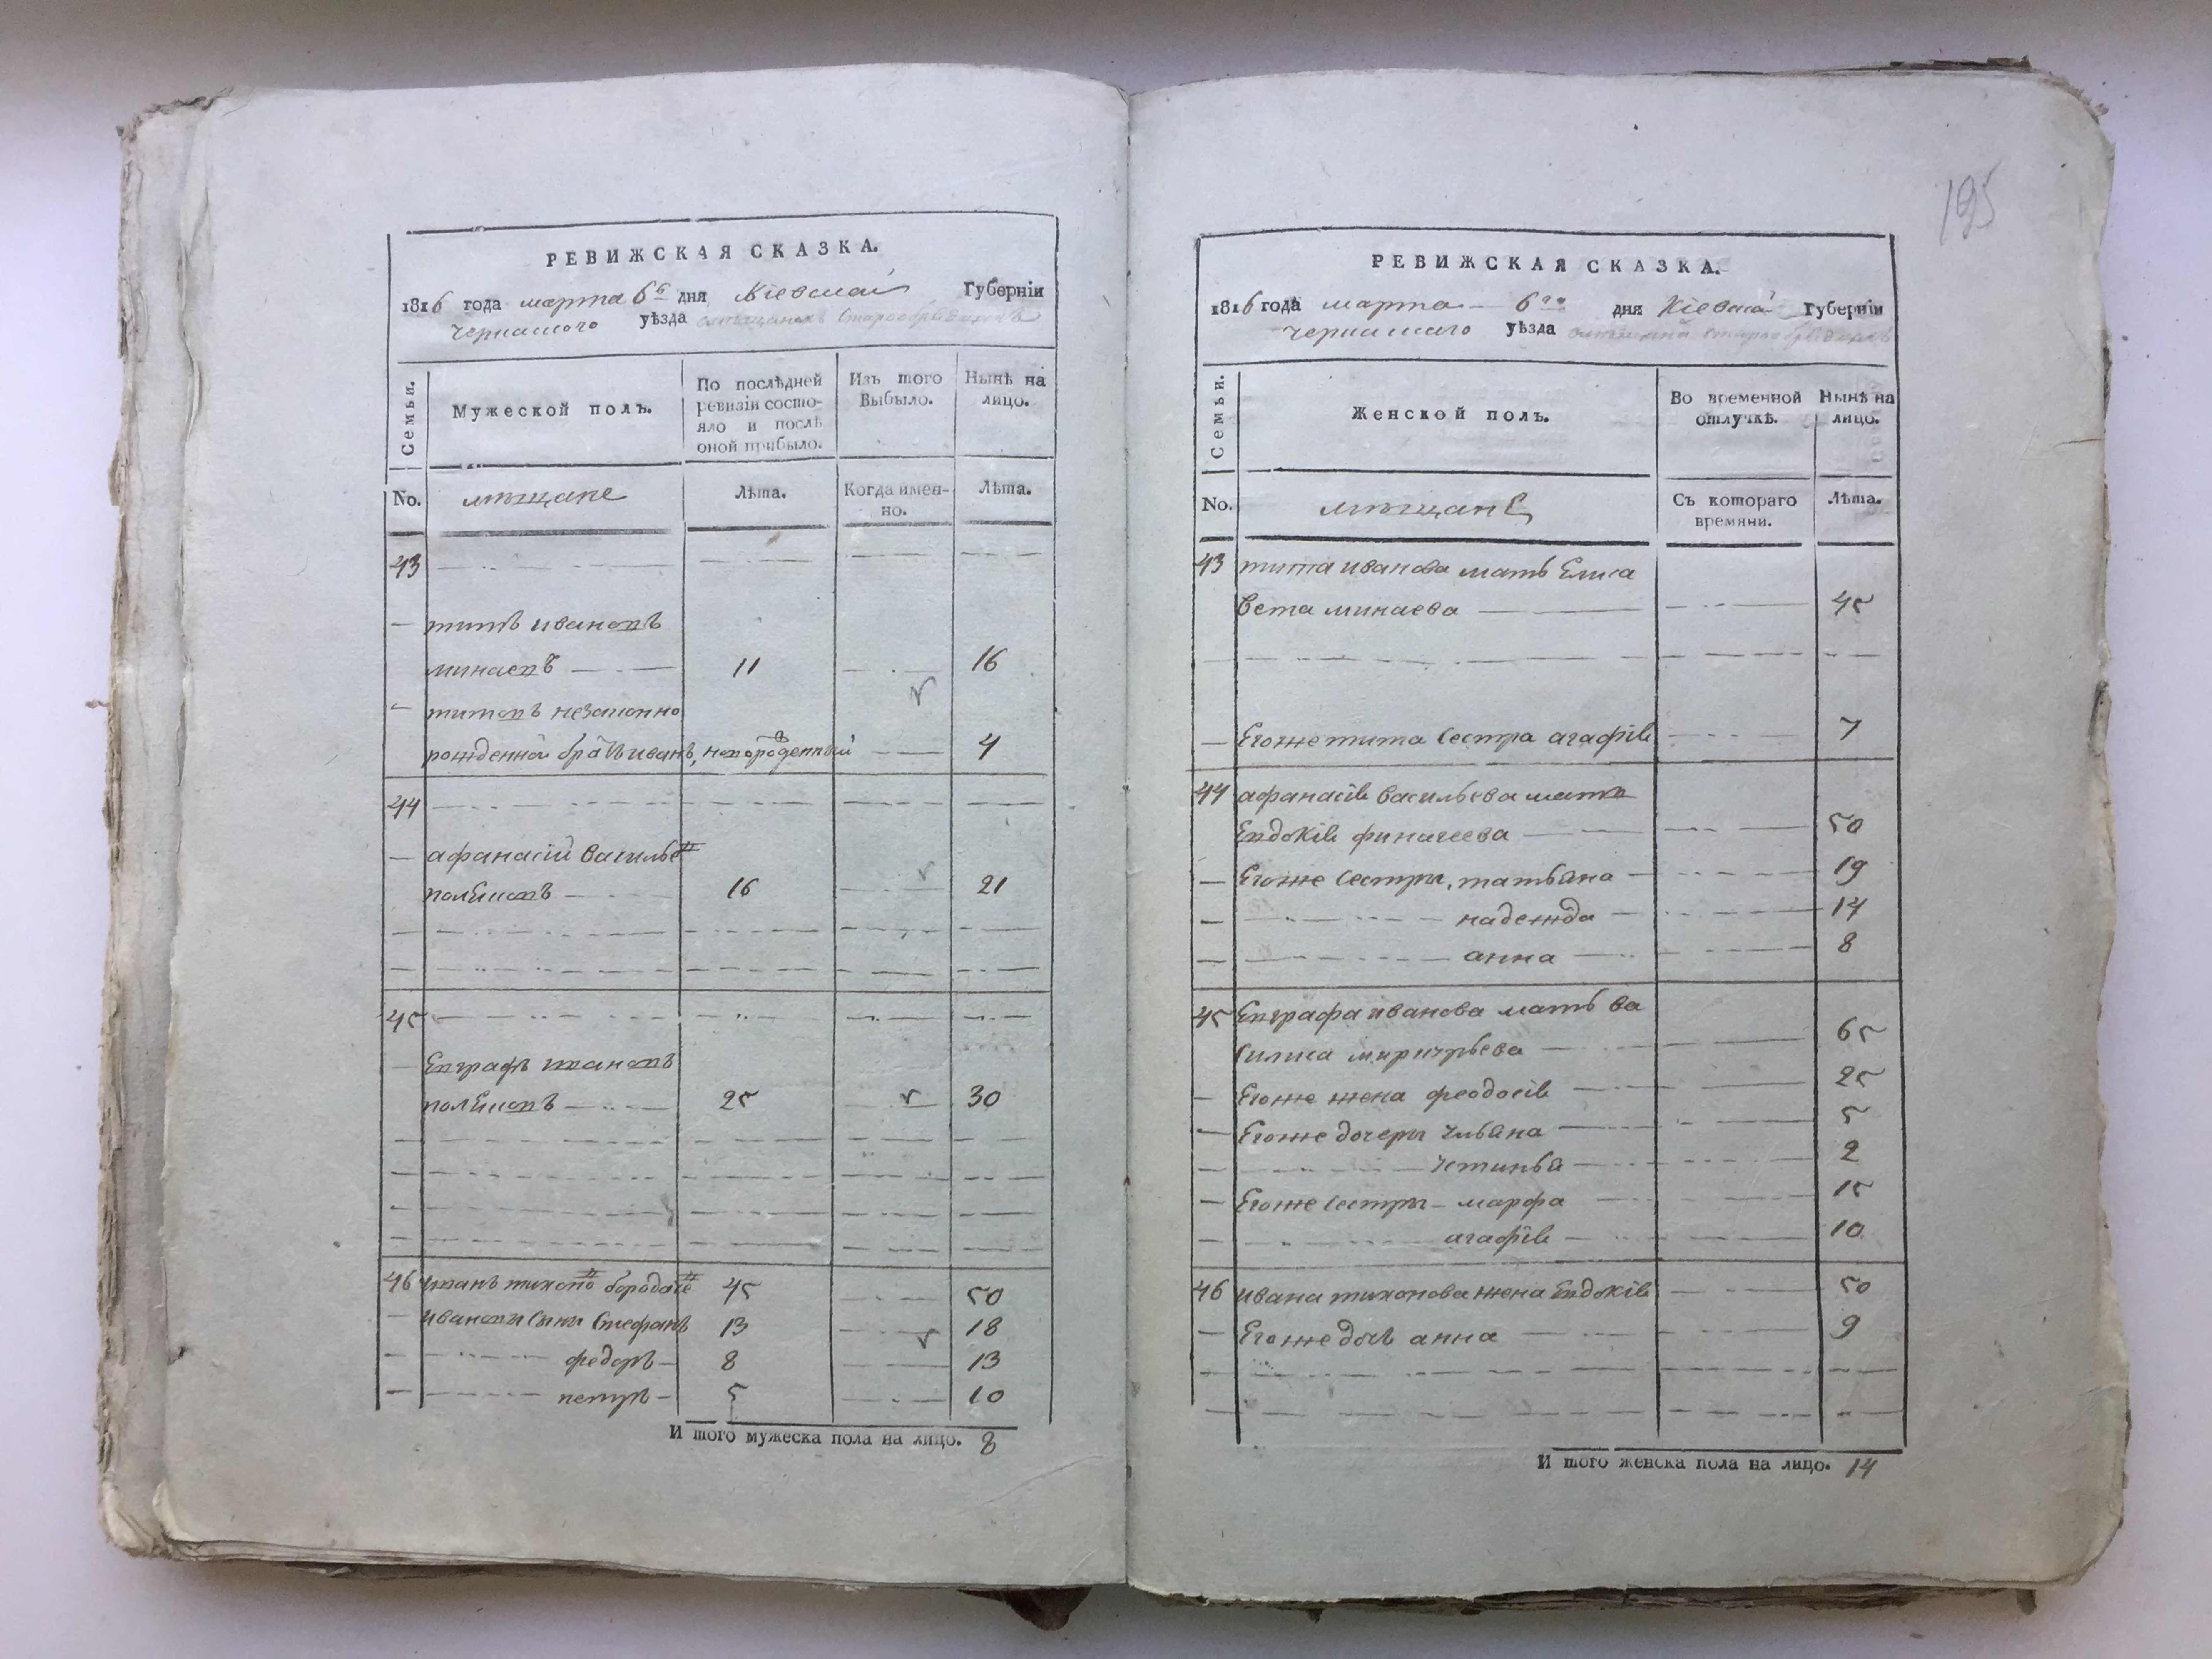 РЕВИЖСКАЯ СКАЗКА.
1816 года марта 6го дня Кіевской Губерніи
Черкаского уѣзда мѣщанъ старообрядцовъ
Семьи.
Мужеской полъ.
По послѣдней ревизіи состо-
яло и послѣ
оной прибыло.
Изъ того
Выбыло.
Нынѣ на
лицо.
No.
мѣщане
Лѣта.
Когда имен-
но.
Лѣта.
43
титъ ивановъ
минаевъ 11 16
титовъ незаконно
рожденной братъ иванъ, новорожденный 4
44
афанасій василье
16 21
45
Евграфъ ивановъ
25 30
46 иванъ тихоно 45 50
ивановы сыны Стефанъ 13 18
федоръ 8 13
петръ 5 10
И того мужеска пола на лицо. 8
195
РЕВИЖСКАЯ СКАЗКА.
1816 года марта 6го дня Кіевской Губерніи
Черкаскаго уѣзда старообрядцовъ
Семьи.
Женской полъ.
Во временной
отлучкѣ.
Нынѣ на
лицо.
No.
мѣщане
Съ котораго
времяни.
Лѣта.
43 тита иванова мать Елиса
вета минаева 45
Егоже тита сестра агафія 7
44 афанасія васильева мать
Евдокія 50
Егоже сестры, татьяна 19
надежда 14
анна 8
45 Евграфа иванова мать ва
силиса 65
Егоже жена феодосія 25
Егоже дочеры ульяна 5
устинья 2
Егоже сестры марфа 15
агафія 10
46 ивана тихонова жена Евдокія 50
Егоже дочь анна 9
И того женска пола на лицо. 14